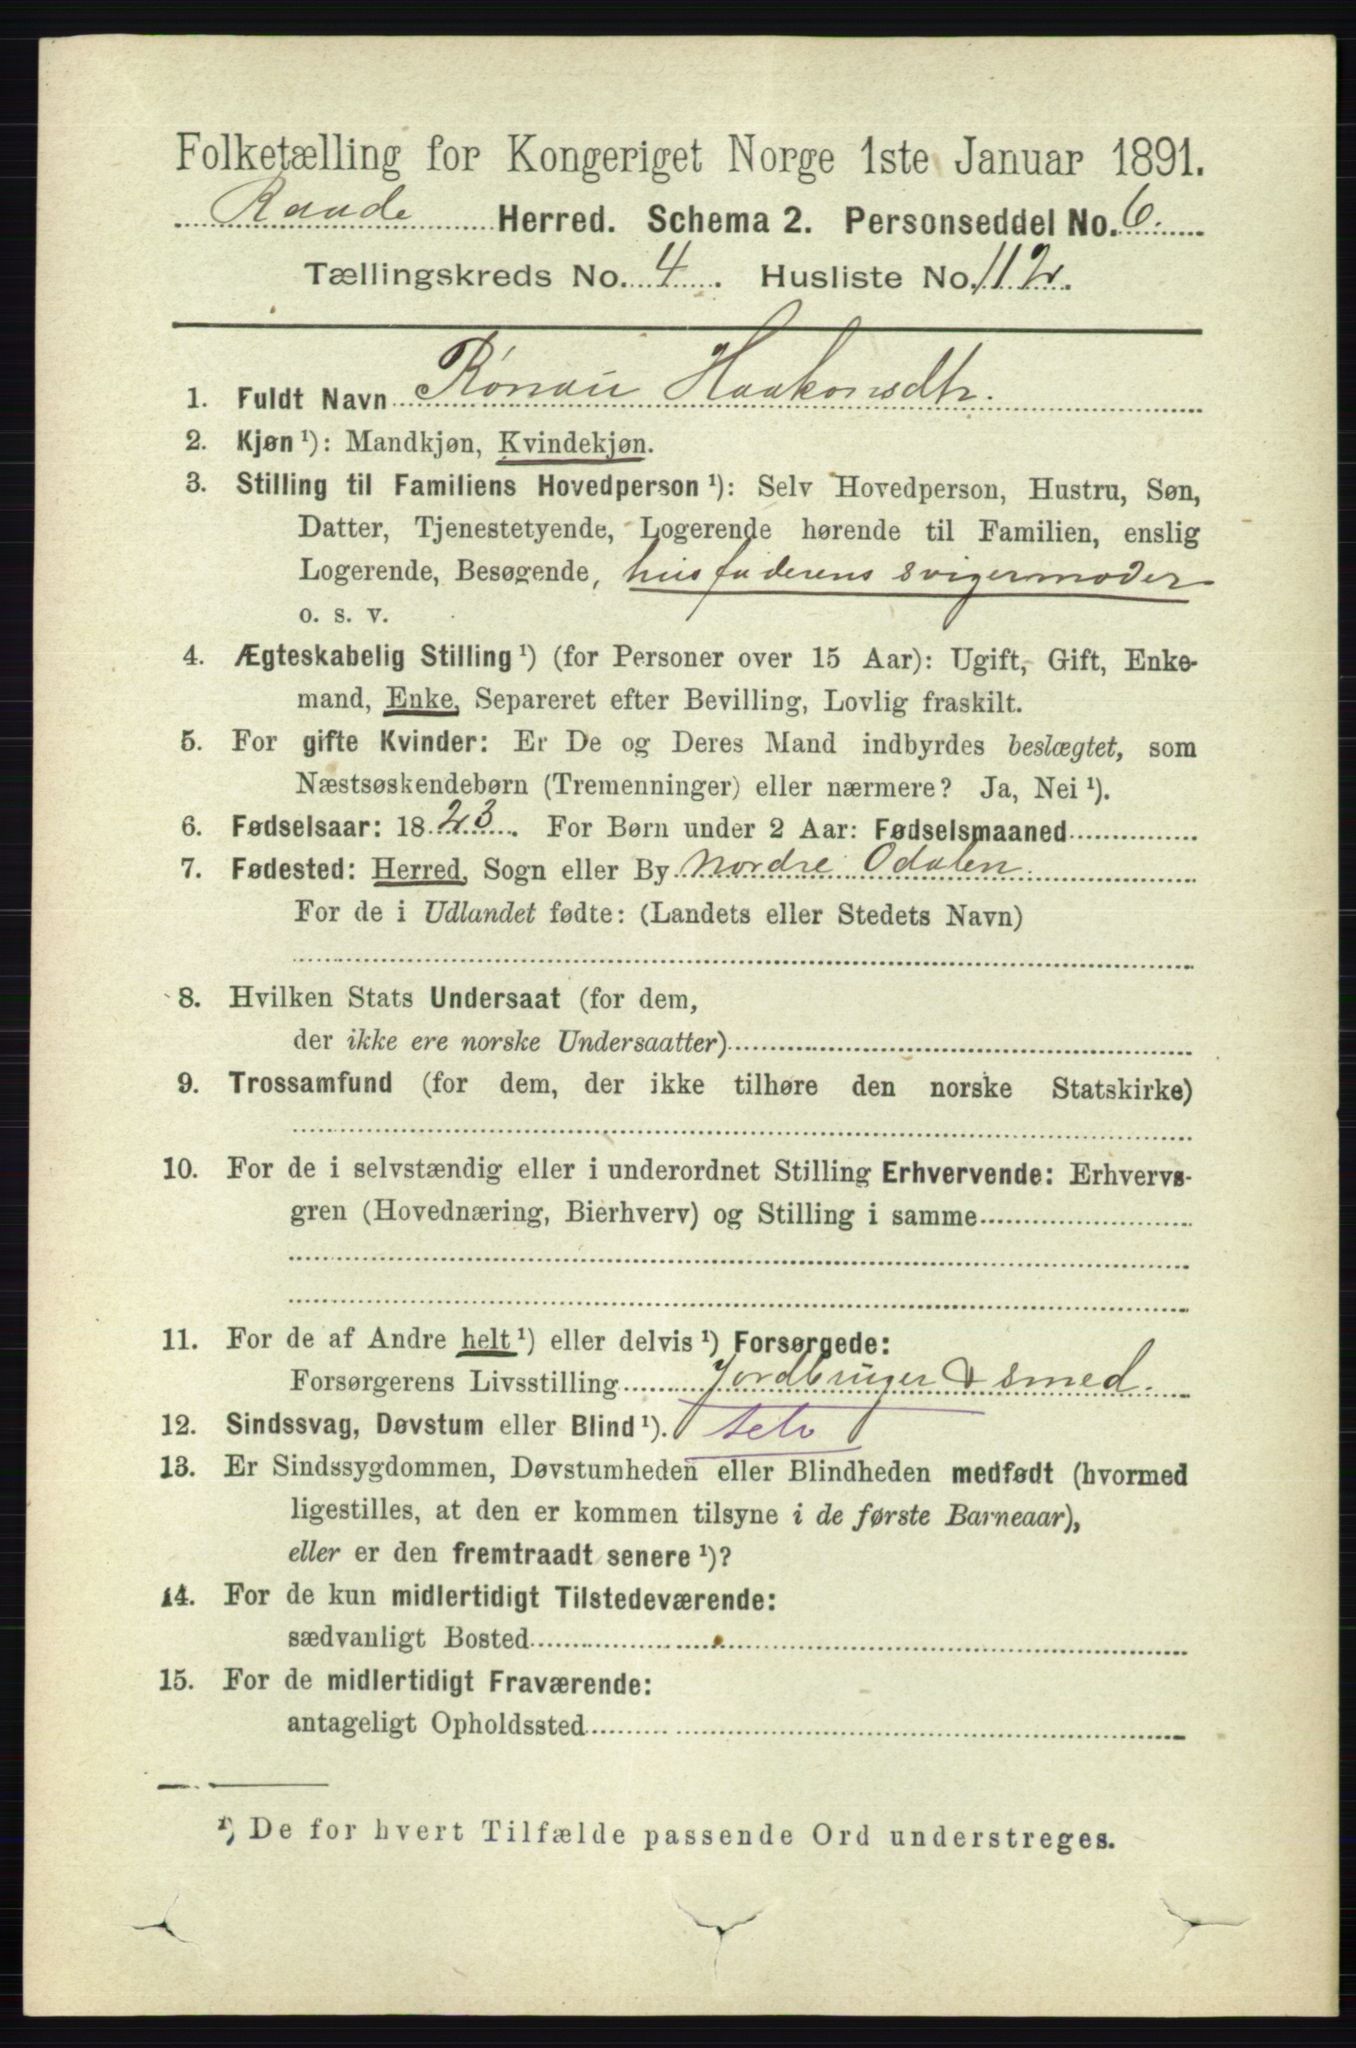 Folketælling for Kongeriget Norge 1ste Januar 1891.
Raade Herred. Schema 2. Personseddel No. 6.
Tællingskreds No. 4. Husliste No. 112.
1. Fuldt Navn Rønau Haakonsdtr.
2. Kjøn ¹): Mandkjøn, Kvindekjøn.
3. Stilling til Familiens Hovedperson ¹): Selv Hovedperson, Hustru, Søn,
Datter, Tjenestetyende, Logerende hørende til Familien, enslig
Logerende, Besøgende, husfaderens svigermoder
o. s. v.
4. Ægteskabelig Stilling ¹) (for Personer over 15 Aar): Ugift, Gift, Enke-
mand, Enke, Separeret efter Bevilling, Lovlig fraskilt.
5. For gifte Kvinder: Er De og Deres Mand indbyrdes beslægtet, som
Næstsøskendebørn (Tremenninger) eller nærmere? Ja, Nei ¹).
6. Fødselsaar: 1823. For Børn under 2 Aar: Fødselsmaaned
7. Fødested: Herred, Sogn eller By Nordre Odalen.
For de i Udlandet fødte: (Landets eller Stedets Navn)
8. Hvilken Stats Undersaat (for dem,
der ikke ere norske Undersaatter)
9. Trossamfund (for dem, der ikke tilhøre den norske Statskirke)
10. For de i selvstændig eller i underordnet Stilling Erhvervende: Erhvervs-
gren (Hovednæring, Bierhverv) og Stilling i samme
11. For de af Andre helt ¹) eller delvis ¹) Forsørgede:
Forsørgerens Livsstilling Jordbruger & smed.
12. Sindssvag, Døvstum eller Blind ¹). selv
13. Er Sindssygdommen, Døvstumheden eller Blindheden medfødt (hvormed
ligestilles, at den er kommen tilsyne i de første Barneaar),
eller er den fremtraadt senere ¹)?
14. For de kun midlertidigt Tilstedeværende:
sædvanligt Bosted
15. For de midlertidigt Fraværende:
antageligt Opholdssted
¹) De for hvert Tilfælde passende Ord understreges.